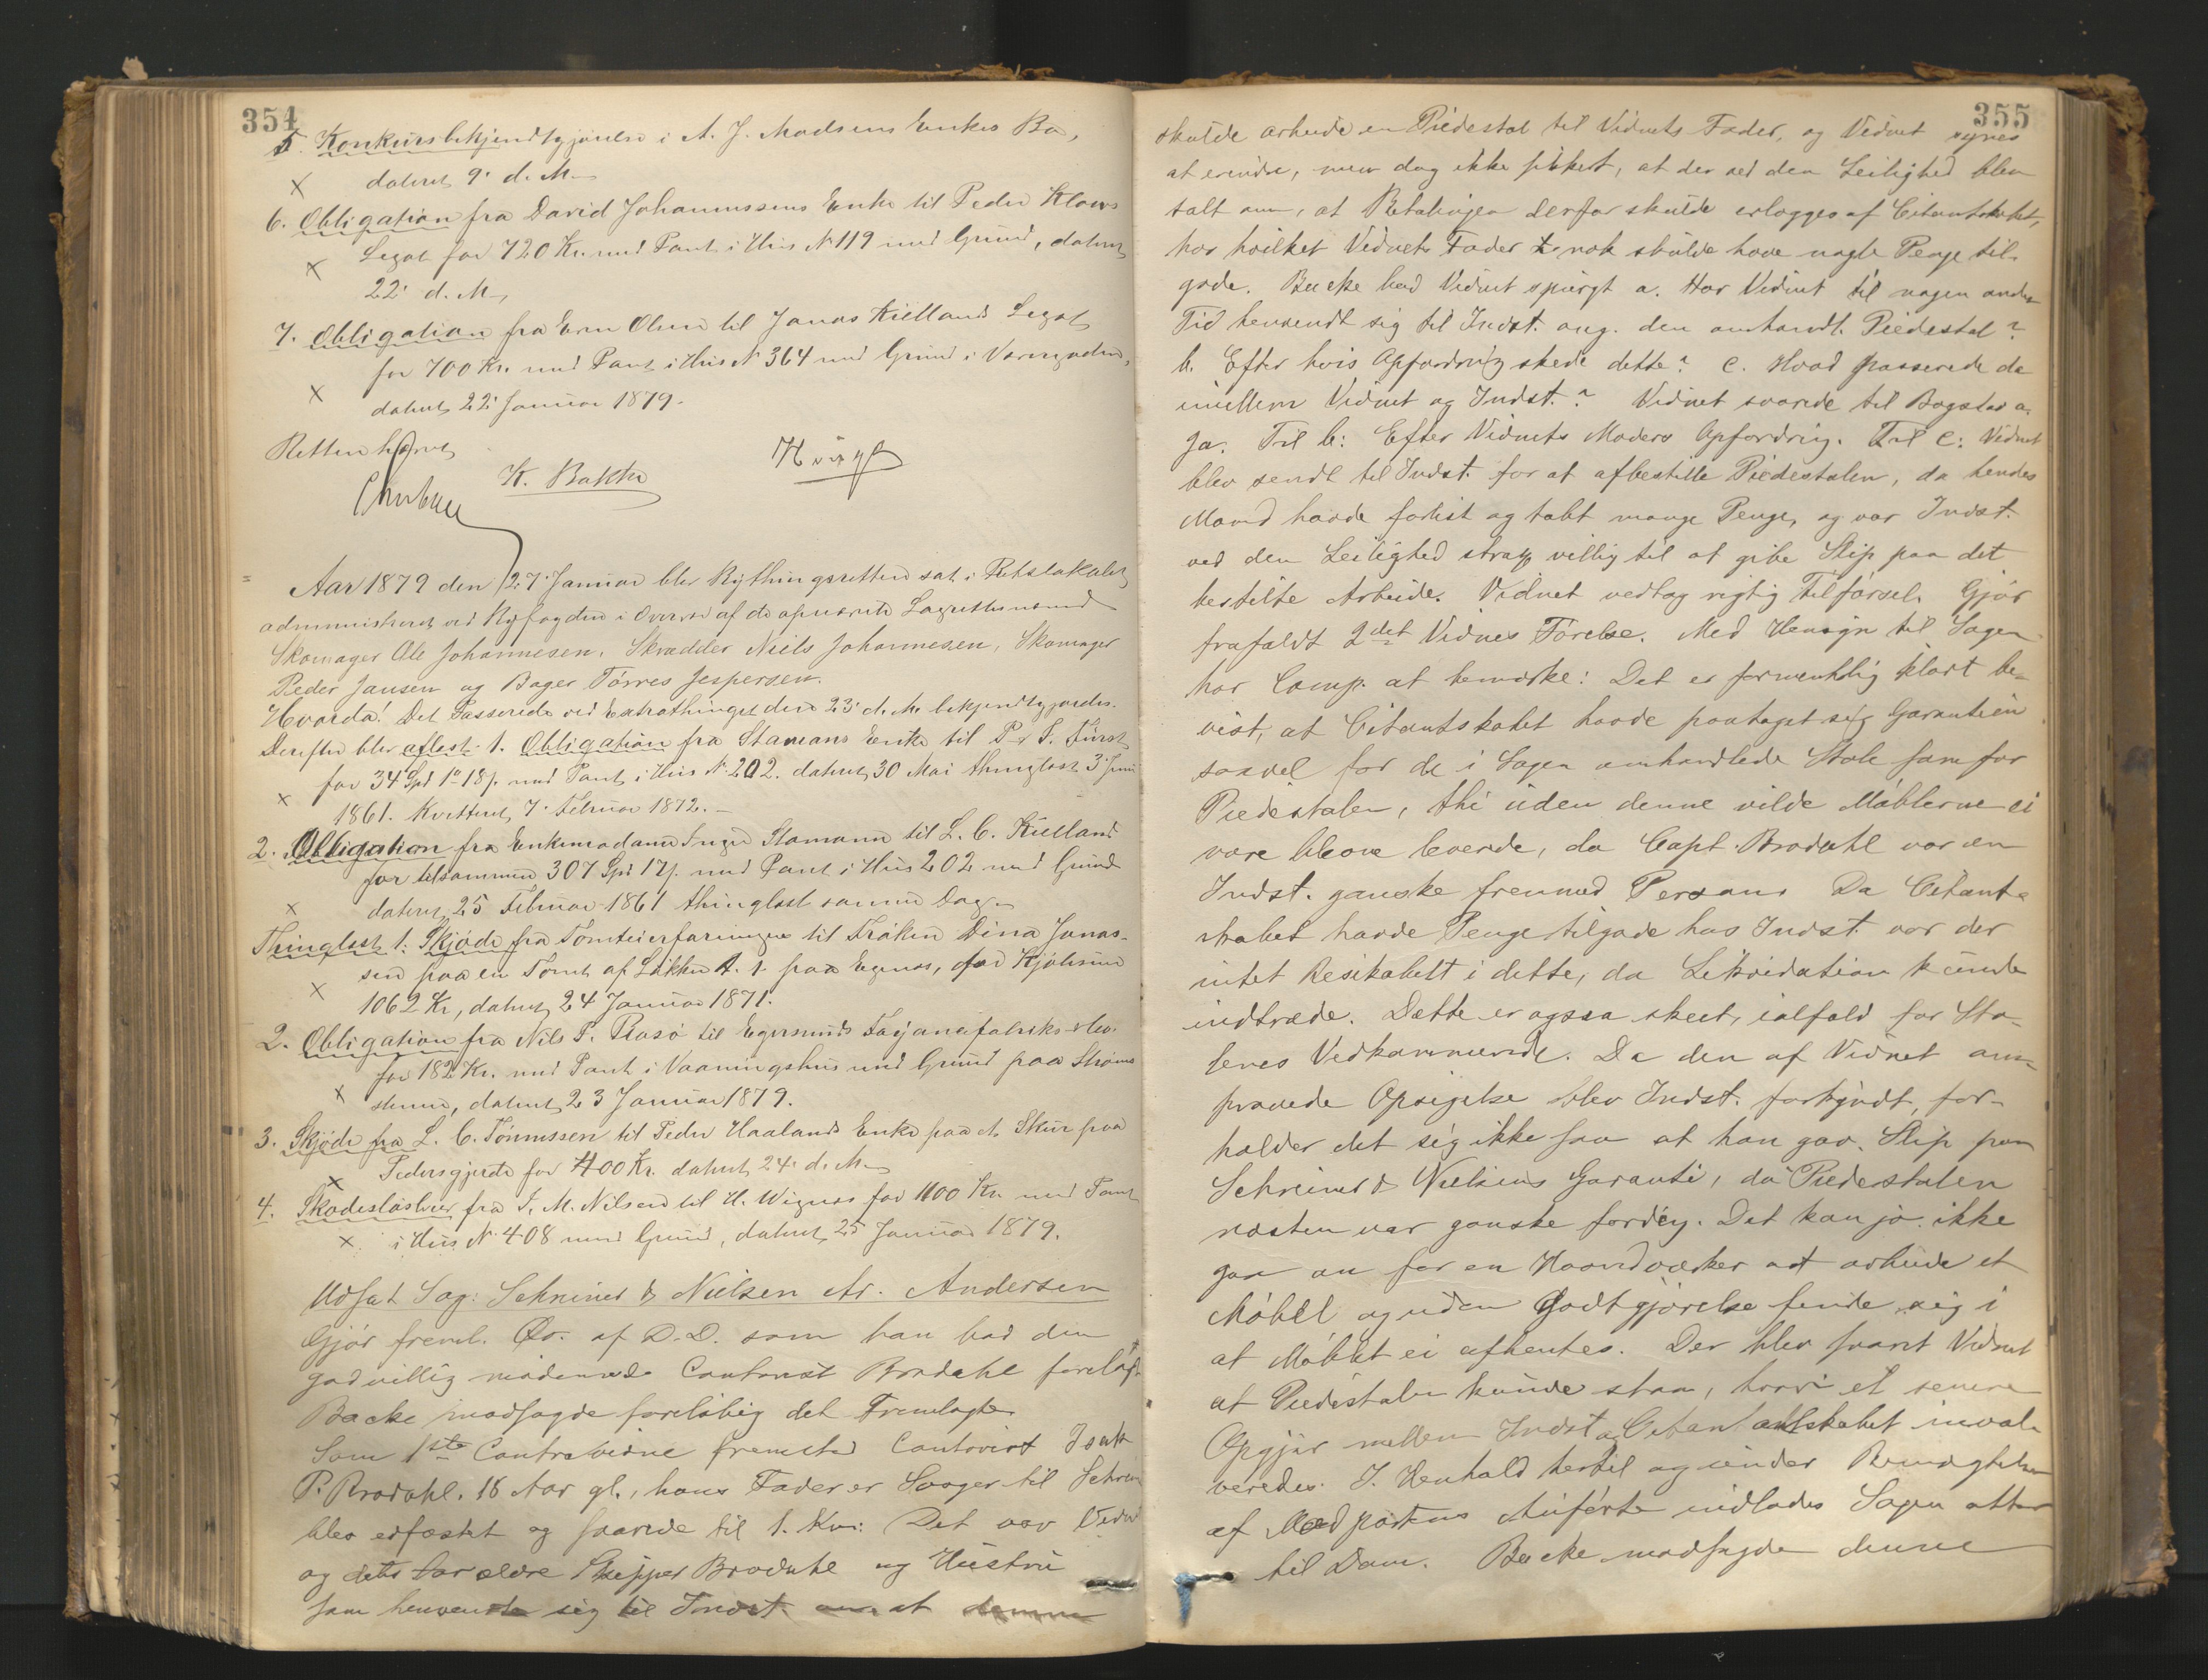 354
5. Konkursbekjendtgjørelse i A. J. Madsens Enkes Bo,
x dateret 9. d. M.
6. Obligation fra David Johannessens Enke til Peder Klows
x Legat for 720 Kr. med Pant i Hus No 119 med Grund, dateret
22. d. M.
7. Obligation fra Olsen til Jonas Kiellands Legat
for 700 Kr. med Pant i Hus No 364 med Grund i
x dateret 22. Januar 1879.
Retten hævet
K. Bakke
Aar 1879 den 27. Januar blev Bythingsretten sat i Retslokalet
administreret ved Byfogden i Overvær af de opnævnte Lagrettesmænd
Skomager Ole Johannesen, Skrædder Niels Johannesen, Skomager
Peder Jansen og Bager Tørres Jespersen.
Hvorda! Det Passerede ved Extrathinget den 23. d. M. bekjendtgjordes.
Derefter blev aflæst 1. Obligation fra Stamans Enke til P. Fürst
x for 34 Spd 1 18 med Pant i Hus No 202. dateret 30 Mai thinglæst 3 Juni
1861. Kvitteret 7. Februar 1872.
2. Obligation fra Enkemadame Stamann til L. C. Kielland
for tilsammen 307 Spd 17 med Pant i Hus 202 med Grund
x dateret 25 Februar 1861 thinglæst samme Dag.
Thinglæst 1. Skjøde fra til Frøken Dina Jonas-
sen paa en Tomt af Løkken paa Egenæs, for Kjøbesum
x 1062 Kr, dateret 24 Januar 1871.
2. Obligation fra Nils P. til Egersunds Fayancefabriks
for 182 Kr. med Pant i Vaaningshus med Grund paa Strøms
x stenen, dateret 23 Januar 1879.
3. Skjøde fra L. C. Tønnessen til Peder Haalands Enke paa et Skur paa
x Pedersgjerde for 400 Kr. dateret 24. d. M.
4. Skadesløsbrev fra T. M. Nilsen til H. Wignæs for 1100 Kr. med Pant
x i Hus No 408 med Grund, dateret 25 Januar 1879.
Udsat Sag: Schreiner & Nielsen Ar. Andersen
Gjør freml. Qv. af D. D. som han bad den
godvillig mødende Contorist Brodahl forelagt
Backe modsagde foreløbig det Fremlagte
Som 1ste Contravidne fremstod Contorist Isak
P. Brodahl. 18 Aar gl., hans Fader er Svoger til Schrei
blev edfæstet og svarede til 1. Kvæ: Det var Vidnet
og dets Forældre Skipper Brodahl og Hustru
som henvendte sig til Indst. om at denne
355
skulde arbeide en Piedestal til Vidnets Fader, og Vidnet synes
at erindre, men dog ikke sikkert, at der ved den Leilighed blev
talt om, at Betalingen derfor skulde erlægges af Citantskabet,
hos hvilket Vidnets Fader nok skulde have nogle Penge til-
gode. Backe bad Vidnet spurgt a. Har Vidnet til nogen anden
Tid henvendt sig til Indst. ang. den omhandl. Piedestal?
b. Efter hvis Opfordring skede dette? c. Hvad passerede da
imellem Vidnet og Indst.? Vidnet svarede til Bogstav a.
Ja. Til b: Efter Vidnets Moders Opfordring. Til c: Vidnet
blev sendt til Indst. for at afbestille Piedestalen, da hendes
Mand havde forlist og tabt mange Penge, og var Indst.
ved den Leilighed strax villig til at give Slip paa det
bestilte Arbeide. Vidnet vedtog rigtig Tilførsel. Gjør
frafaldt 2det Vidnes Førelse. Med Hensyn til Sagen
har Comp. at bemærke: Det er formentlig klart be-
vist, at Citantskabet havde paataget sig Garantien
saavel for de i Sagen omhandlede Stole som for
Piedestalen, thi uden denne vilde Møblerne ei
være bleven leverede, da Capt. Brodahl var en
Indst. ganske fremmed Person. Da Citant-
skabet havde Penge tilgode hos Indst. var der
intet Resikabelt i dette, da Likvidation kunde
indtræde. Dette er ogsaa skeet, ialfald for Sto-
lenes Vedkommende. Da den af Vidnet om-
provede Opsigelse blev Indst. forkyndt, for-
holder det sig ikke saa at han gav Slip paa
Schreiner & Nielsens Garanti, da Piedestalen
næsten var ganske færdig. Det kan jo ikke
gaa an for en Haandværker at arbeide et
Møbel og uden Godtgjørelse finde sig i
at Møblet ei afhentes. Der blev svaret Vidnet
at Piedestalen kunde staa, hvori et senere
Opgjør mellem Indst og Citantskabet inval-
veredes. I Henhold hertil og under Benægtelse
af Modpartens Anførte indlodes Sagen atter
til Dom. Backe modsagde denne